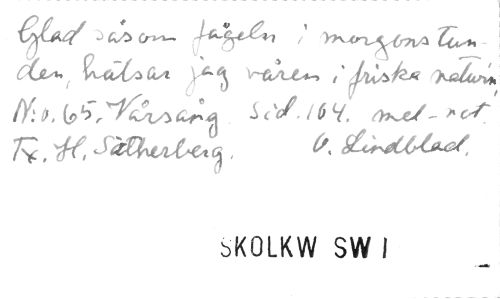 Glad såsom fågeln i morgonstun-
den, hälsar jag våren i friska naturn,
N:o. 65. Vårsång. Sid. 104. mel-not.
Tx. H. Sätherberg. O. Lindblad.
SKOLKW SW I